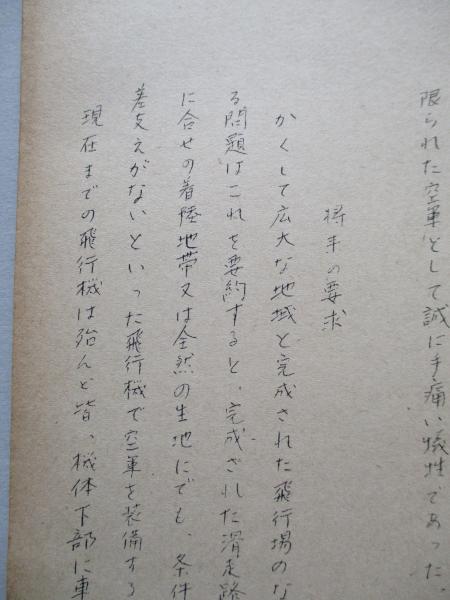 限られた空軍として誠に手痛い犠牲であった。
将来の要求
かくして広大な地域と完成された飛行場のな
る問題はこれを要約すると、完成された滑走路
に合せの着陸地帯又は全然の生地にでも、条件
差支えがないといった飛行機で空軍を装備する
現在までの飛行機は殆んど皆、機体下部に車